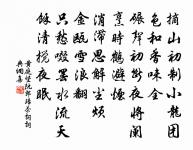 摘山初制小龍團
色和香味全
碾聲初斷夜將闌
烹時鶴避煙
消滯思解塵煩
金甌雪浪翻
只愁啜罷水流天
餘清攪夜眠
黃庭堅阮郎歸茶詞